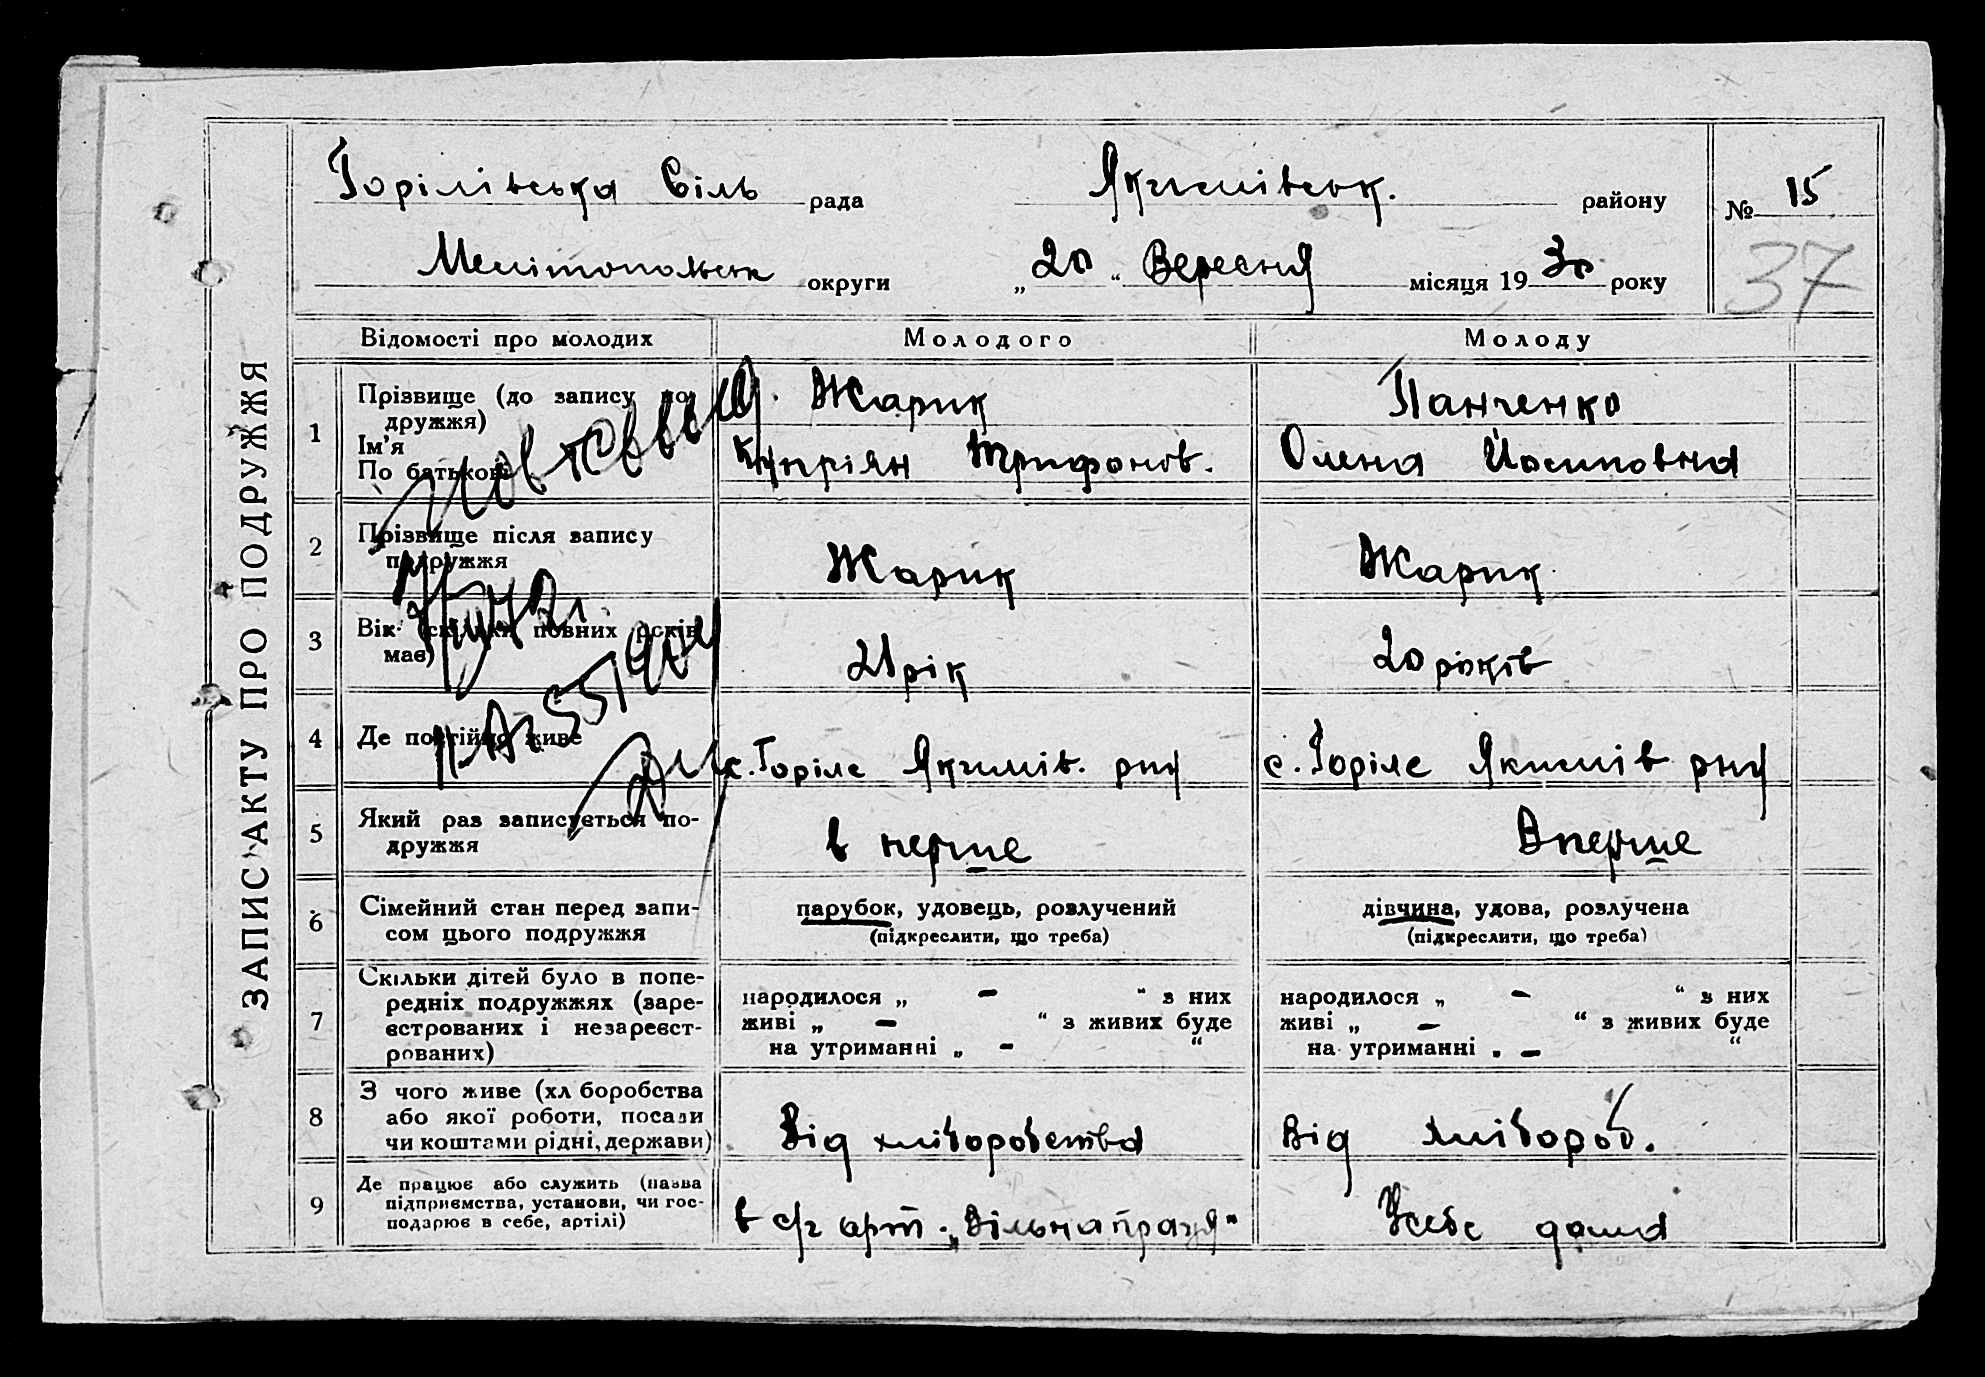 ЗАПИС АКТУ ПРО ПОДРУЖЖЯ
Горілівська Сіль рада Якимівськ. району № 15
37
Мелітопольськ округи „20“ Вересня місяця 1930 року
Відомості про молодих Молодого Молоду
1 Прізвище (до запису по-
дружжя)
Ім'я
По батькові
Жарик
Купріян Трифонов.
Панченко
Олена Йосиповна
2 Прізвище після запису
подружжя
Жарик
Жарик
3 Вік (скільки повних років
має)
21 рік
20 років
4 Де постійно живе
с. Горіле Якимів. рну
с. Горіле Якимів рну
5 Який раз записується по-
дружжя
в перше
Вперше
6 Сімейний стан перед запи-
сом цього подружжя
парубок, удовець, розлучений
(підкреслити, що треба)
дівчина, удова, розлучена
(підкреслити, що треба)
7 Скільки дітей було в попе-
редніх подружжях (заре-
єстрованих і незареєст-
рованих)
народилося „ – “ з них
живі „ – “ з живих буде
на утриманні „ – “
народилося „ – “ з них
живі „ – “ з живих буде
на утриманні „ – “
8 З чого живе (хл боробства
або якої роботи, посади
чи коштами рідні, держави)
Від хліборобства
Від хлібороб.
9 Де працює або служить (назва
підприємства, установи, чи гос-
подарює в себе, артілі)
в с/г арт. „Вільна праця“
Усебе дома